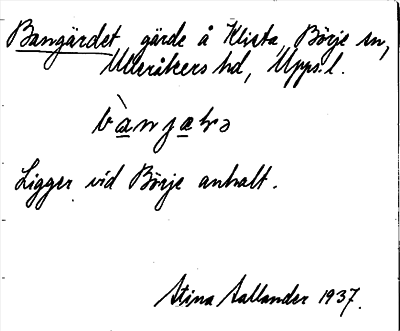 Bangärdet gärde å Klista, Börje sn,
Ulleråkers hd, Upps. l.
bànjaḷrə
Ligger vid Börje anhalt.
Stina Sallander 1937.